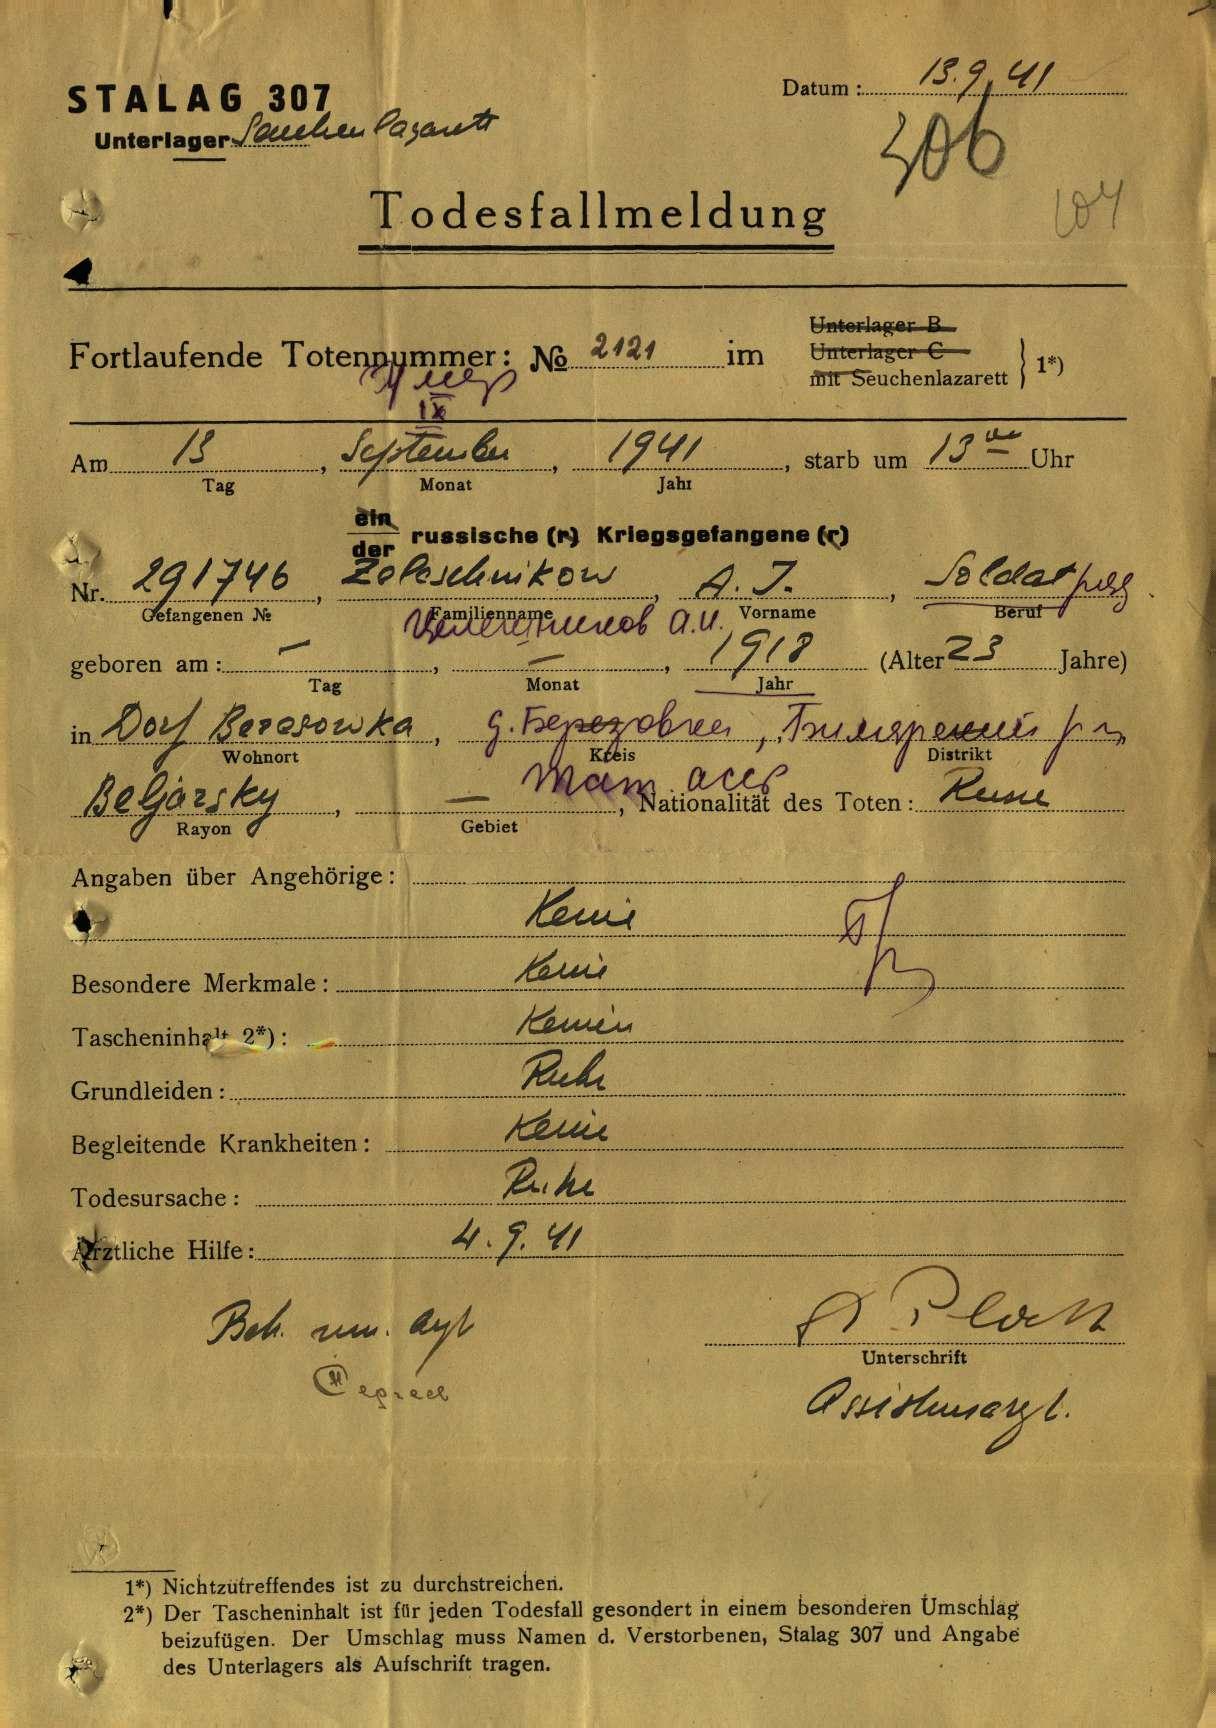 STALAG 307
Datum: 13.9.41
Unterlager Seuchenlazarett
306
104
Todesfallmeldung
Unterlager B
Fortlaufende Totennummer: № 2121 im Unterlager C 1*)
mit Seuchenlazarett
умер
IX
Am 13, September, 1941, starb um 13 Uhr
Tag Monat Jahr
ein
der russische (r) Kriegsgefangene (r)
Nr. 291746, Zeleschnikow, A. J., Soldat ряд
Gefangenen № Familienname Vorname Beruf
А.И.
geboren am: –, –, 1918 (Alter 23 Jahre)
Tag Monat Jahr
in Dorf Beresowka, д. Березовка, Билярский р-н
Wohnort Kreis Distrikt
Тат. асср
Beljarsky, –, Nationalität des Toten: Russe
Rayon Gebiet
Angaben über Angehörige:
Keine
Besondere Merkmale: Keine
Tascheninhalt 2*): Keinen
Grundleiden: Ruhr
Begleitende Krankheiten: Keine
Todesursache: Ruhr
Ärztliche Hilfe: 4.9.41
Beh.
Unterschrift
Assistenzarzt.
1*) Nichtzutreffendes ist zu durchstreichen.
2*) Der Tascheninhalt ist für jeden Todesfall gesondert in einem besonderen Umschlag
beizufügen. Der Umschlag muss Namen d. Verstorbenen, Stalag 307 und Angabe
des Unterlagers als Aufschrift tragen.